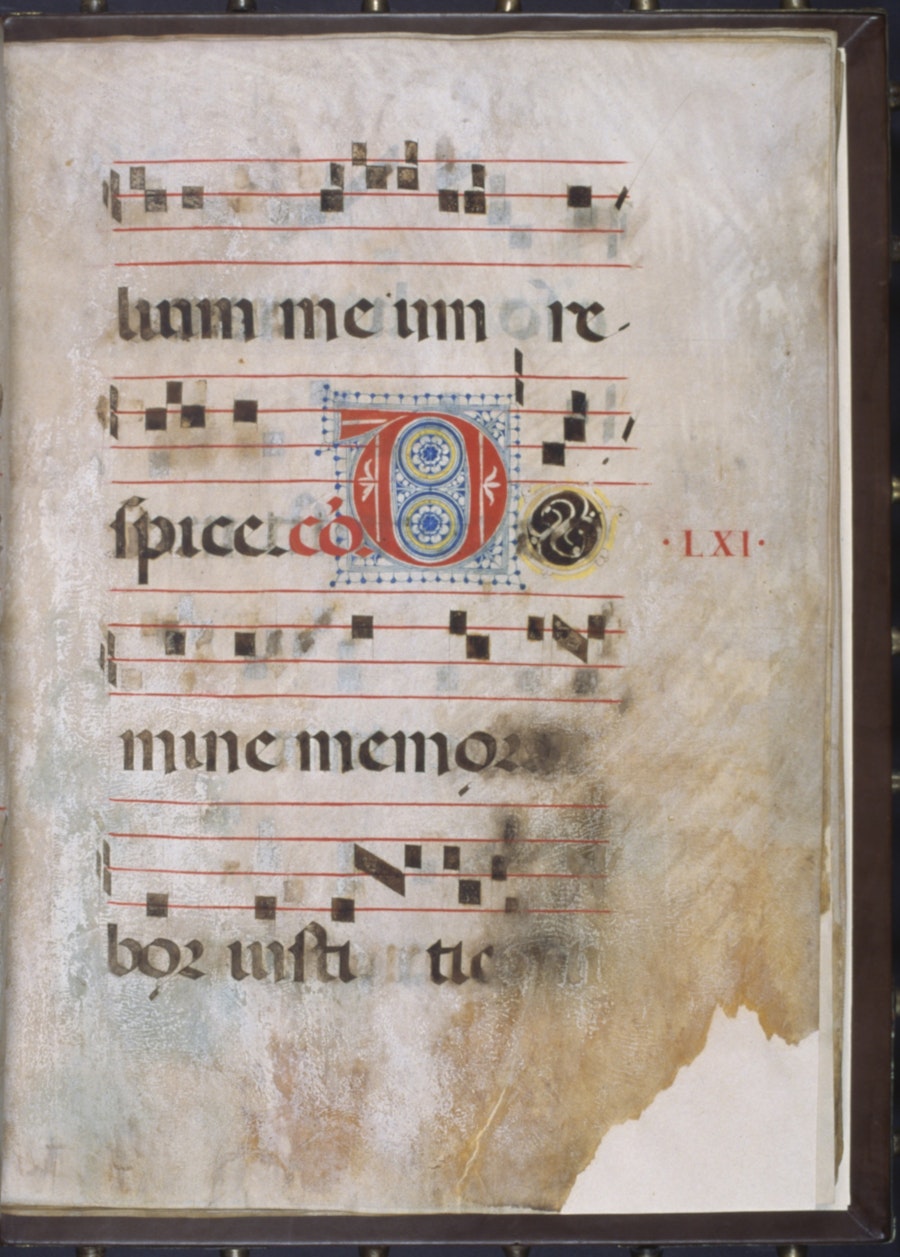 lium me um re
spice. cō. DO ·LXI·
mine memor
bor iusti tie